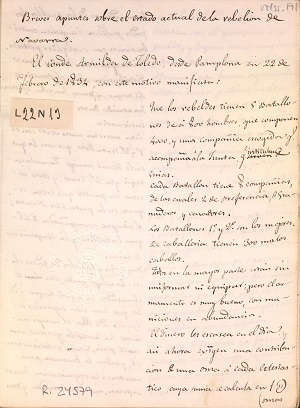 Breves apuntes sobre el estado actual de la rebelion de
Navarra.
El conde Armildez de Toledo, desde Pamplona en 22 de
Febrero de 1834, con este motivo manifiesta:
L22N19
Que los rebeldes tienen 5 Batallo
nes de á 800 hombres, que componen
4000, y una compañía
acompaña á la Junta
Cada Batallon tiene 8 compañías,
de las cuales 2 de preferencia, ó Gra
naderos y cazadores.
Los Batallones 1º y 2º son los mejores,
de caballeria tienen 300 malos
caballos.
Todos en la mayor parte están sin
uniformar ni equipar; pero el ar
mamento es muy bueno, con mu
niciones en abundancia.
El dinero les escasea en el dia,
asi ahora exigen una contribu
cion de una onza á cada eclesias
tico, cuya suma se calcula en 1
onzas
R. 24579